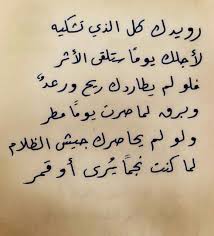 رويدك كل الذي تشكيه
لأجلك يومًا ستلقى الأثر
فلو لم يطاردك ريح ورعدٌ
وبرق لما صرت يومًا مطر
ولو لم يحاصرك جيش الظلام
لما كنت نجمًا يُرى أو قمر